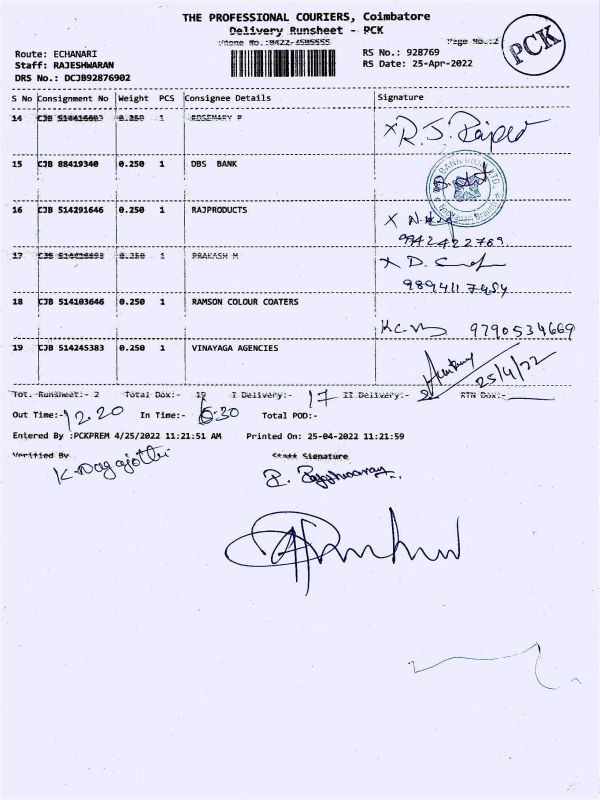 THE PROFESSIONAL COURIERS, Coimbatore
Delivery Runsheet - PCK
Phone No.:0422-4505555 Page No.:2
PCK
Route: ECHANARI RS No.: 928769
Staff: RAJESHWARAN RS Date: 25-Apr-2022
DRS No.: DCJB92876902
S No Consignment No Weight PCS Consignee Details Signature
14 CJB 0.250 1 ROSEMARY P
15 CJB 88419340 0.250 1 DBS BANK
16 CJB 514291646 0.250 1 RAJPRODUCTS
9942422769
17 CJB 0.250 1 PRAKASH M
9894117454
18 CJB 514103646 0.250 1 RAMSON COLOUR COATERS
9790534669
19 CJB 514245383 0.250 1 VINAYAGA AGENCIES
25/4/22
Tot. Runsheet:- 2 Total Dox:- 19 I Delivery:- 17 II Delivery:- RTN Dox:-
Out Time:- 12.20 In Time:- 6.30 Total POD:-
Entered By :PCKPREM 4/25/2022 11:21:51 AM Printed On: 25-04-2022 11:21:59
Verified By Staff Signature
K. Nagajothi